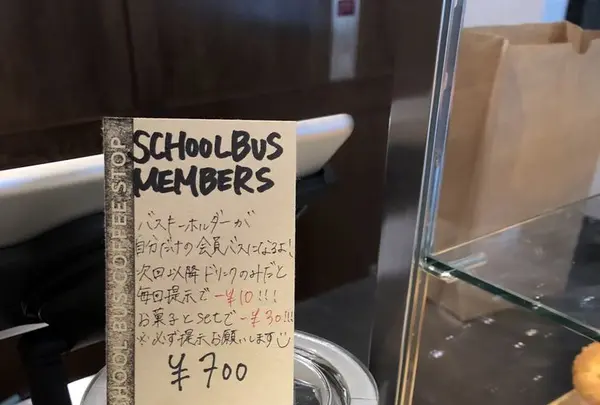 SCHOOLBUS
MEMBERS
バスキーホルダーが
自分だけの会員バスになるよ！
次回以降ドリンクのみだと
毎回提示で -¥10!!!
お菓子とsetで -¥30!!!
※必ず提示お願いします
¥700
SCHOOL BUS COFFEE STOP